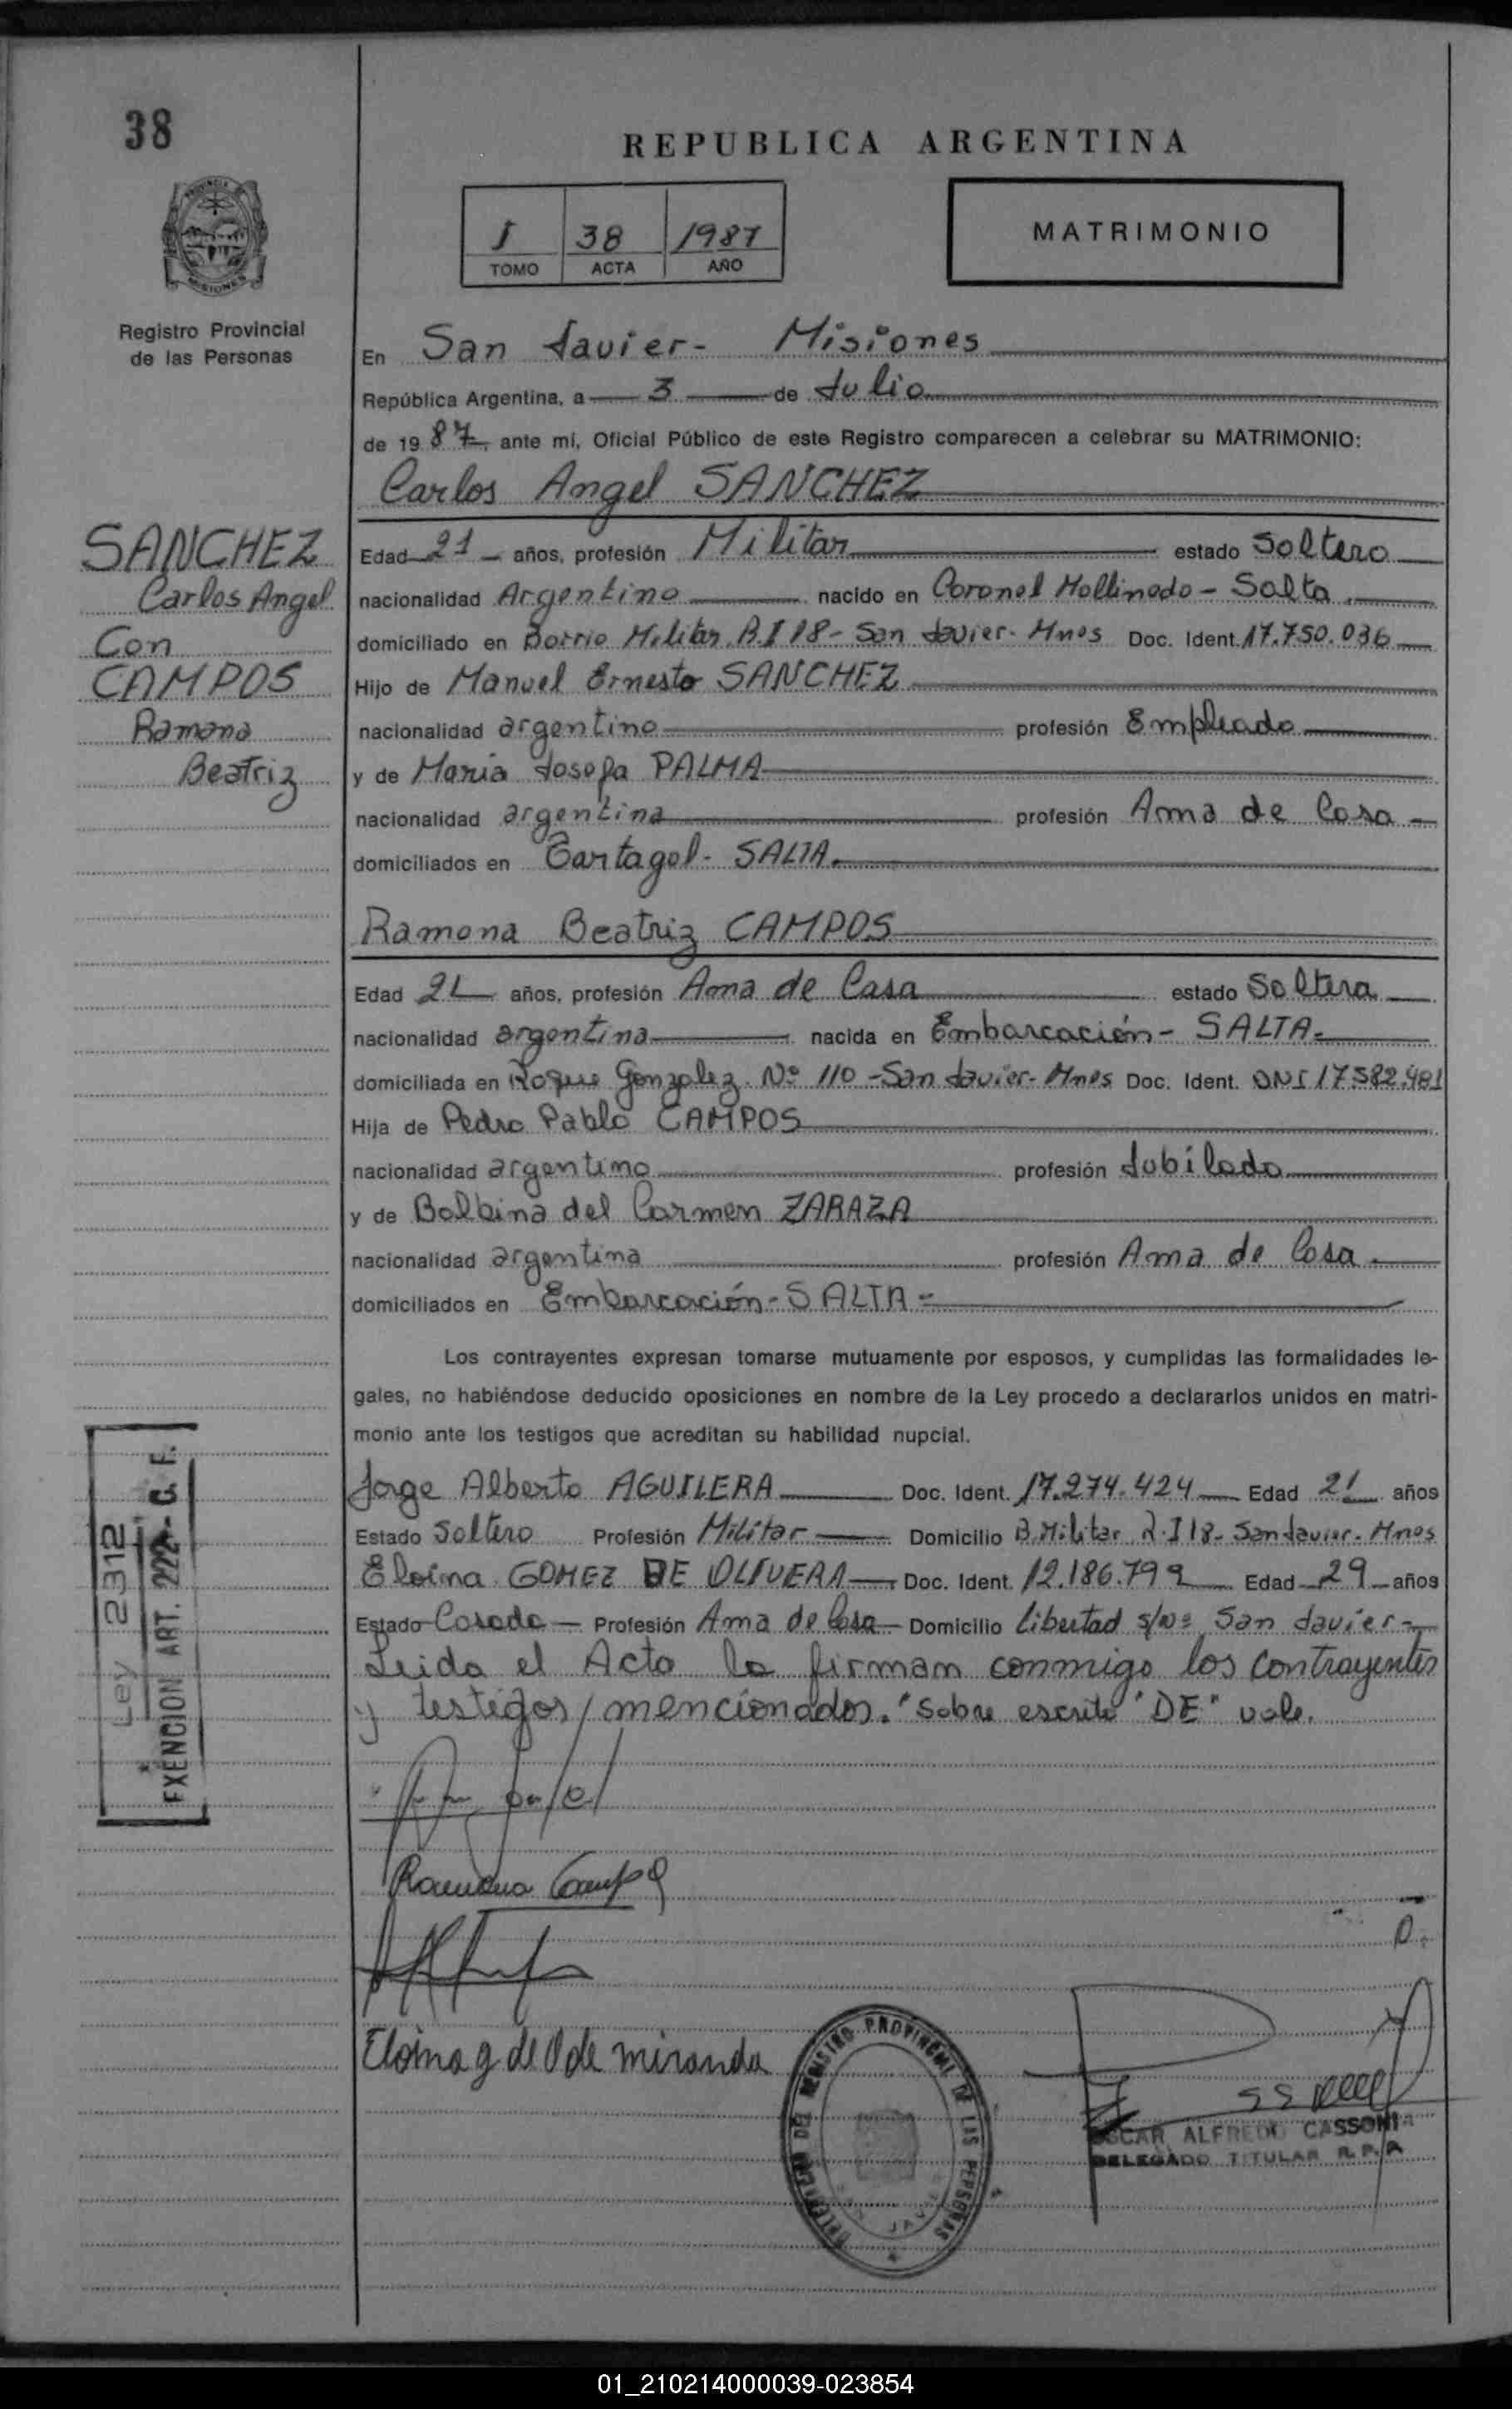 38
REPUBLICA ARGENTINA
I 38 1987
TOMO ACTA AÑO
MATRIMONIO
PROVINCIA DE
MISIONES
Registro Provincial
de las Personas
SANCHEZ
Carlos Angel
Con
CAMPOS
Ramona
Beatriz
En San Javier- Misiones
República Argentina, a 3 de Julio
de 1987, ante mi, Oficial Público de este Registro comparecen a celebrar su MATRIMONIO:
Carlos Angel SANCHEZ
Edad 21 años, profesión Militar estado Soltero
nacionalidad Argentino nacido en Coronel Mollinedo - Salta
domiciliado en Barrio Militar R.I 18- San Javier- Mnes Doc. Ident. 17.750.036
Hijo de Manuel Ernesto SANCHEZ
nacionalidad argentino profesión Empleado
y de Maria Josefa PALMA
nacionalidad argentina profesión Ama de Casa
domiciliados en Tartagal- SALTA.
Ramona Beatriz CAMPOS
Edad 21 años, profesión Ama de Casa estado Soltera
nacionalidad argentina nacida en Embarcación - SALTA-
domiciliada en Roque Gonzalez Nº 110 -San Javier- Mnes Doc. Ident. DNI 17582.481
Hija de Pedro Pablo CAMPOS
nacionalidad argentino profesión Jubilado
y de Balbina del Carmen ZARAZA
nacionalidad argentina profesión Ama de Casa
domiciliados en Embarcación- SALTA -
Los contrayentes expresan tomarse mutuamente por esposos, y cumplidas las formalidades le-
gales, no habiéndose deducido oposiciones en nombre de la Ley procedo a declararlos unidos en matri-
monio ante los testigos que acreditan su habilidad nupcial.
Jorge Alberto AGUILERA Doc. Ident. 17.274.424 Edad 21 años
Estado Soltero Profesión Militar Domicilio B.Militar R.I 18- San Javier- Mnes
Eloina GOMEZ DE OLIVERA Doc. Ident. 12.186.799 Edad 29 años
Estado Casada Profesión Ama de Casa Domicilio Libertad s/nº San Javier-
Leida el Acta la firman conmigo los contrayentes
y testigos/mencionados. "Sobre escrito "DE" vale.
Ley 2312
EXENCION ART. 222 - C. F.
Ramona Campo
Eloina g de O de miranda
DELEGACION DEL REGISTRO PROVINCIAL DE LAS PERSONAS
SAN JAVIER
OSCAR ALFREDO CASSONI
DELEGADO TITULAR R.P.P.
01_210214000039-023854